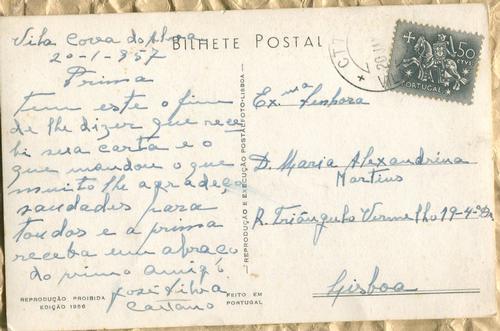 BILHETE POSTAL
Vila Cova do Alva
20-1-957
Prima
Tem este o fim
de lhe dizer que rece
bi sua carta e o
que mandou o que
muito lhe agradeço
saudades para
toudos e a prima
receba um abraço
do primo amigo
José Silva
Caetano
REPRODUÇÃO PROIBIDA
EDIÇÃO 1956
FEITO EM
PORTUGAL
REPRODUÇÃO E EXECUÇÃO POSTALFOTO-LISBOA
CTT
50
CTVS
PORTUGAL
Ex.ma Senhora
D. Maria Alexandrina
Martins
R. Triângulo Vermelho 19-4-º
Lisboa